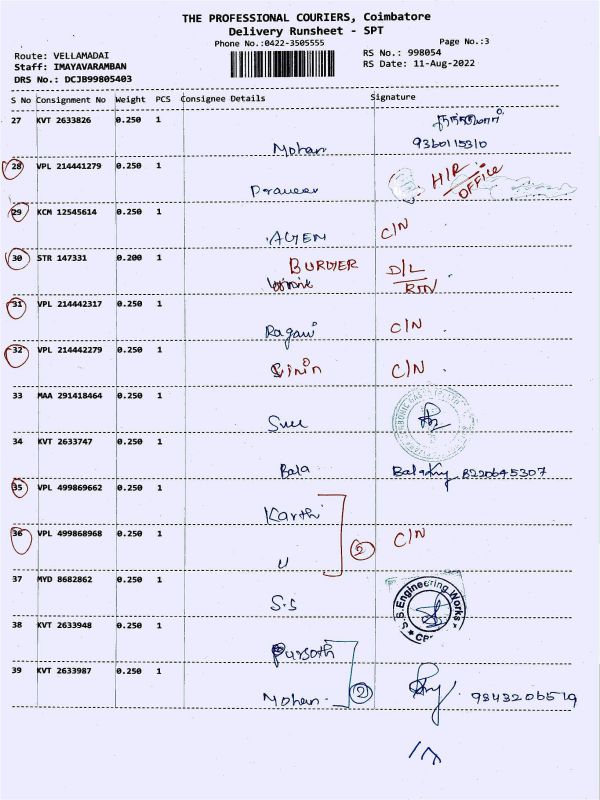 THE PROFESSIONAL COURIERS, Coimbatore
Delivery Runsheet - SPT
Phone No.:0422-3505555
Page No.:3
Route: VELLAMADAI
RS No.: 998054
Staff: IMAYAVARAMBAN
RS Date: 11-Aug-2022
DRS No.: DCJB99805403
S No Consignment No Weight PCS Consignee Details Signature
27 KVT 2633826 0.250 1
Mohan 9360115310
28 VPL 214441279 0.250 1 H/R OFFICE
Praveen
29 KCM 12545614 0.250 1 C/N
30 STR 147331 0.200 1 BURGER D/L
RTN
31 VPL 214442317 0.250 1 C/N
Ragavi
32 VPL 214442279 0.250 1 C/N
33 MAA 291418464 0.250 1
34 KVT 2633747 0.250 1
Bala 8220645307
35 VPL 499869662 0.250 1
Karthi
36 VPL 499868968 0.250 1 2 C/N
U
37 MYD 8682862 0.250 1
S.S S.S. Engineering Works
38 KVT 2633948 0.250 1
Pursoth
39 KVT 2633987 0.250 1
Mohan 2